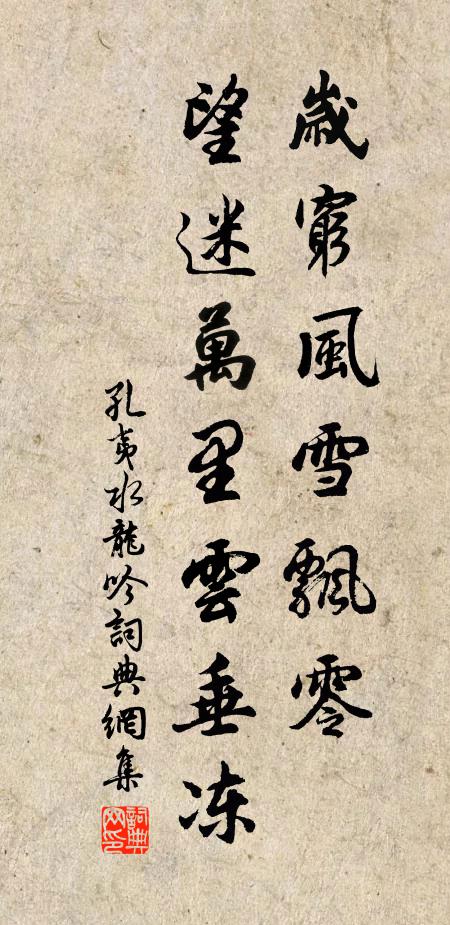 歲窮風雪飄零
望迷萬里雲垂冻
孔夷水龍吟詞典網集
詞典網印